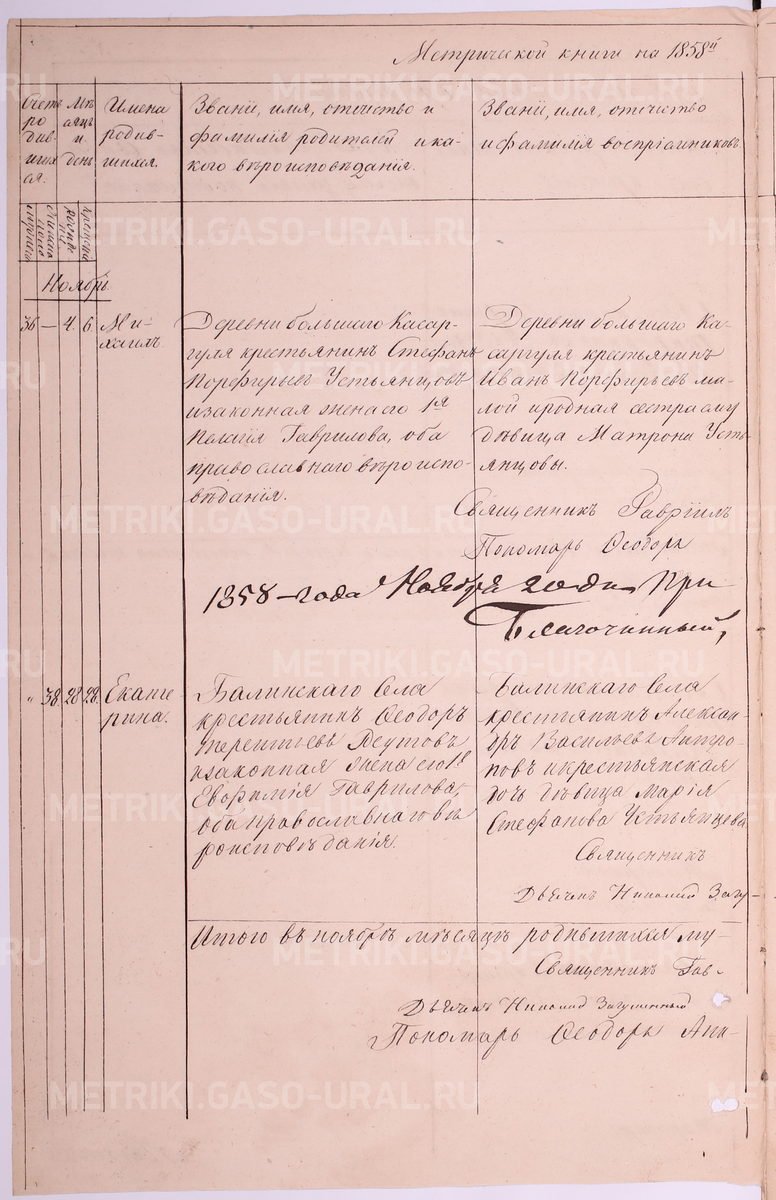 Метрической книги на 1858й
Счетъ родившихся.
Мѣсяцъ и день
Имена родившихся.
Званіе, имя, отечество и
фамилія родителей и ка-
кого вѣроисповѣданія.
Званіе, имя, отечество
и фамилія воспріемниковъ.
Ноябрь.
36 — 4. 6.
Ми-
хаилъ
Деревни большаго Касар-
гуля крестьянинъ Стефанъ
Порфирьевъ Устьянцовъ
и законная жена его 1я
Пелагія Гаврилова, оба
православнаго вѣроиспо-
вѣданія.
Деревни большаго Ка-
саргуля крестьянинъ
Иванъ Порфирьевъ ма-
лой и родная сестра ему
дѣвица Матрона Усть-
янцовы.
Священникъ Гавріилъ
Пономарь Ѳеодоръ
1858 — года Ноября 20 дня при
Благочинный,
" 38 28 28.
Екате-
рина.
Балинскаго Села
крестьянинъ Ѳеодоръ
Терентьевъ
и законная жена его 1я
Евфимія Гаврилова,
оба православнаго вѣ
роисповѣданія.
Балинскаго Села
крестьянинъ Алексан-
дръ Васильевъ Антро-
повъ и крестьянская
дочь дѣвица Марія
Стефанова Устьянцева
Священникъ
Дьячекъ Николай Загу-
Итого въ ноябрѣ мѣсяцѣ родившихся му-
Священникъ Гав-
Дьячекъ Николай Загуменный
Пономарь Ѳеодоръ
METRIKI.GASO-URAL.RU